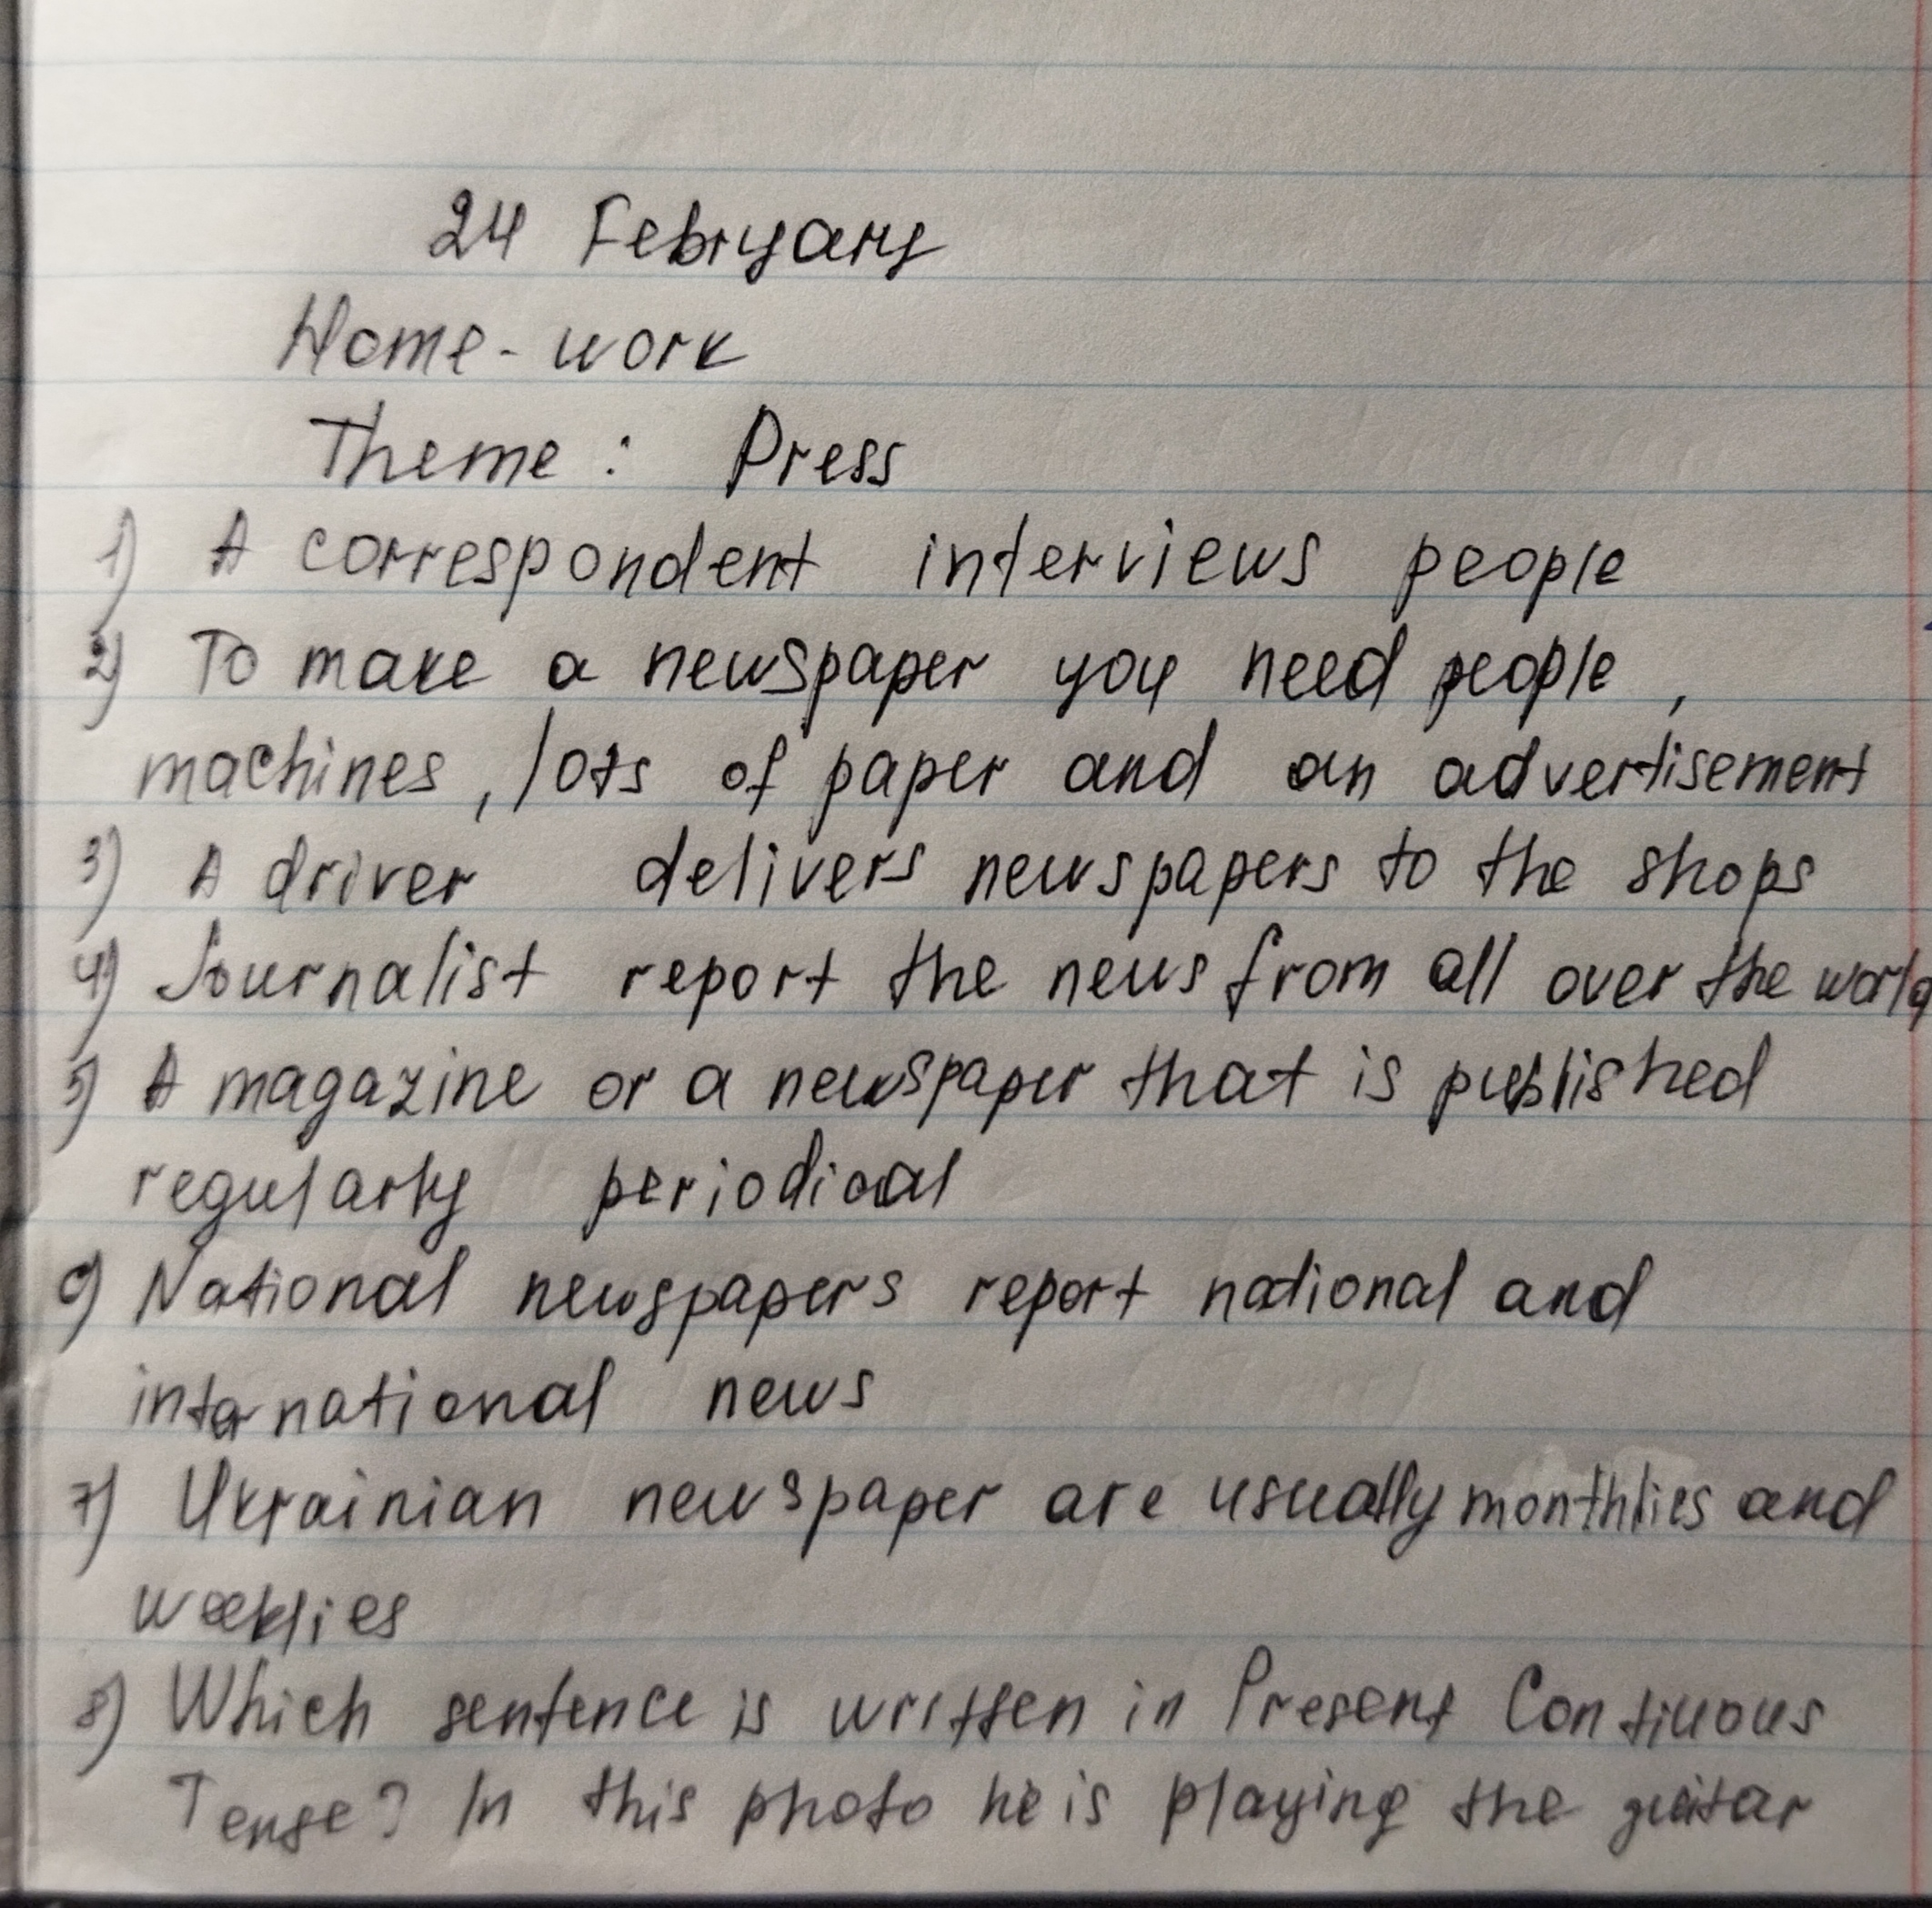 24 February
Home-work
Theme: Press
1) A correspondent interviews people
2) To make a newspaper you need people,
machines, lots of paper and an advertisement
3) A driver delivers newspapers to the shops
4) Journalist report the news from all over the world
5) A magazine or a newspaper that is published
regularly periodical
6) National newspapers report national and
international news
7) Ukrainian newspaper are usually monthlies and
weeklies
8) Which sentence is written in Present Continuous
Tense? In this photo he is playing the guitar